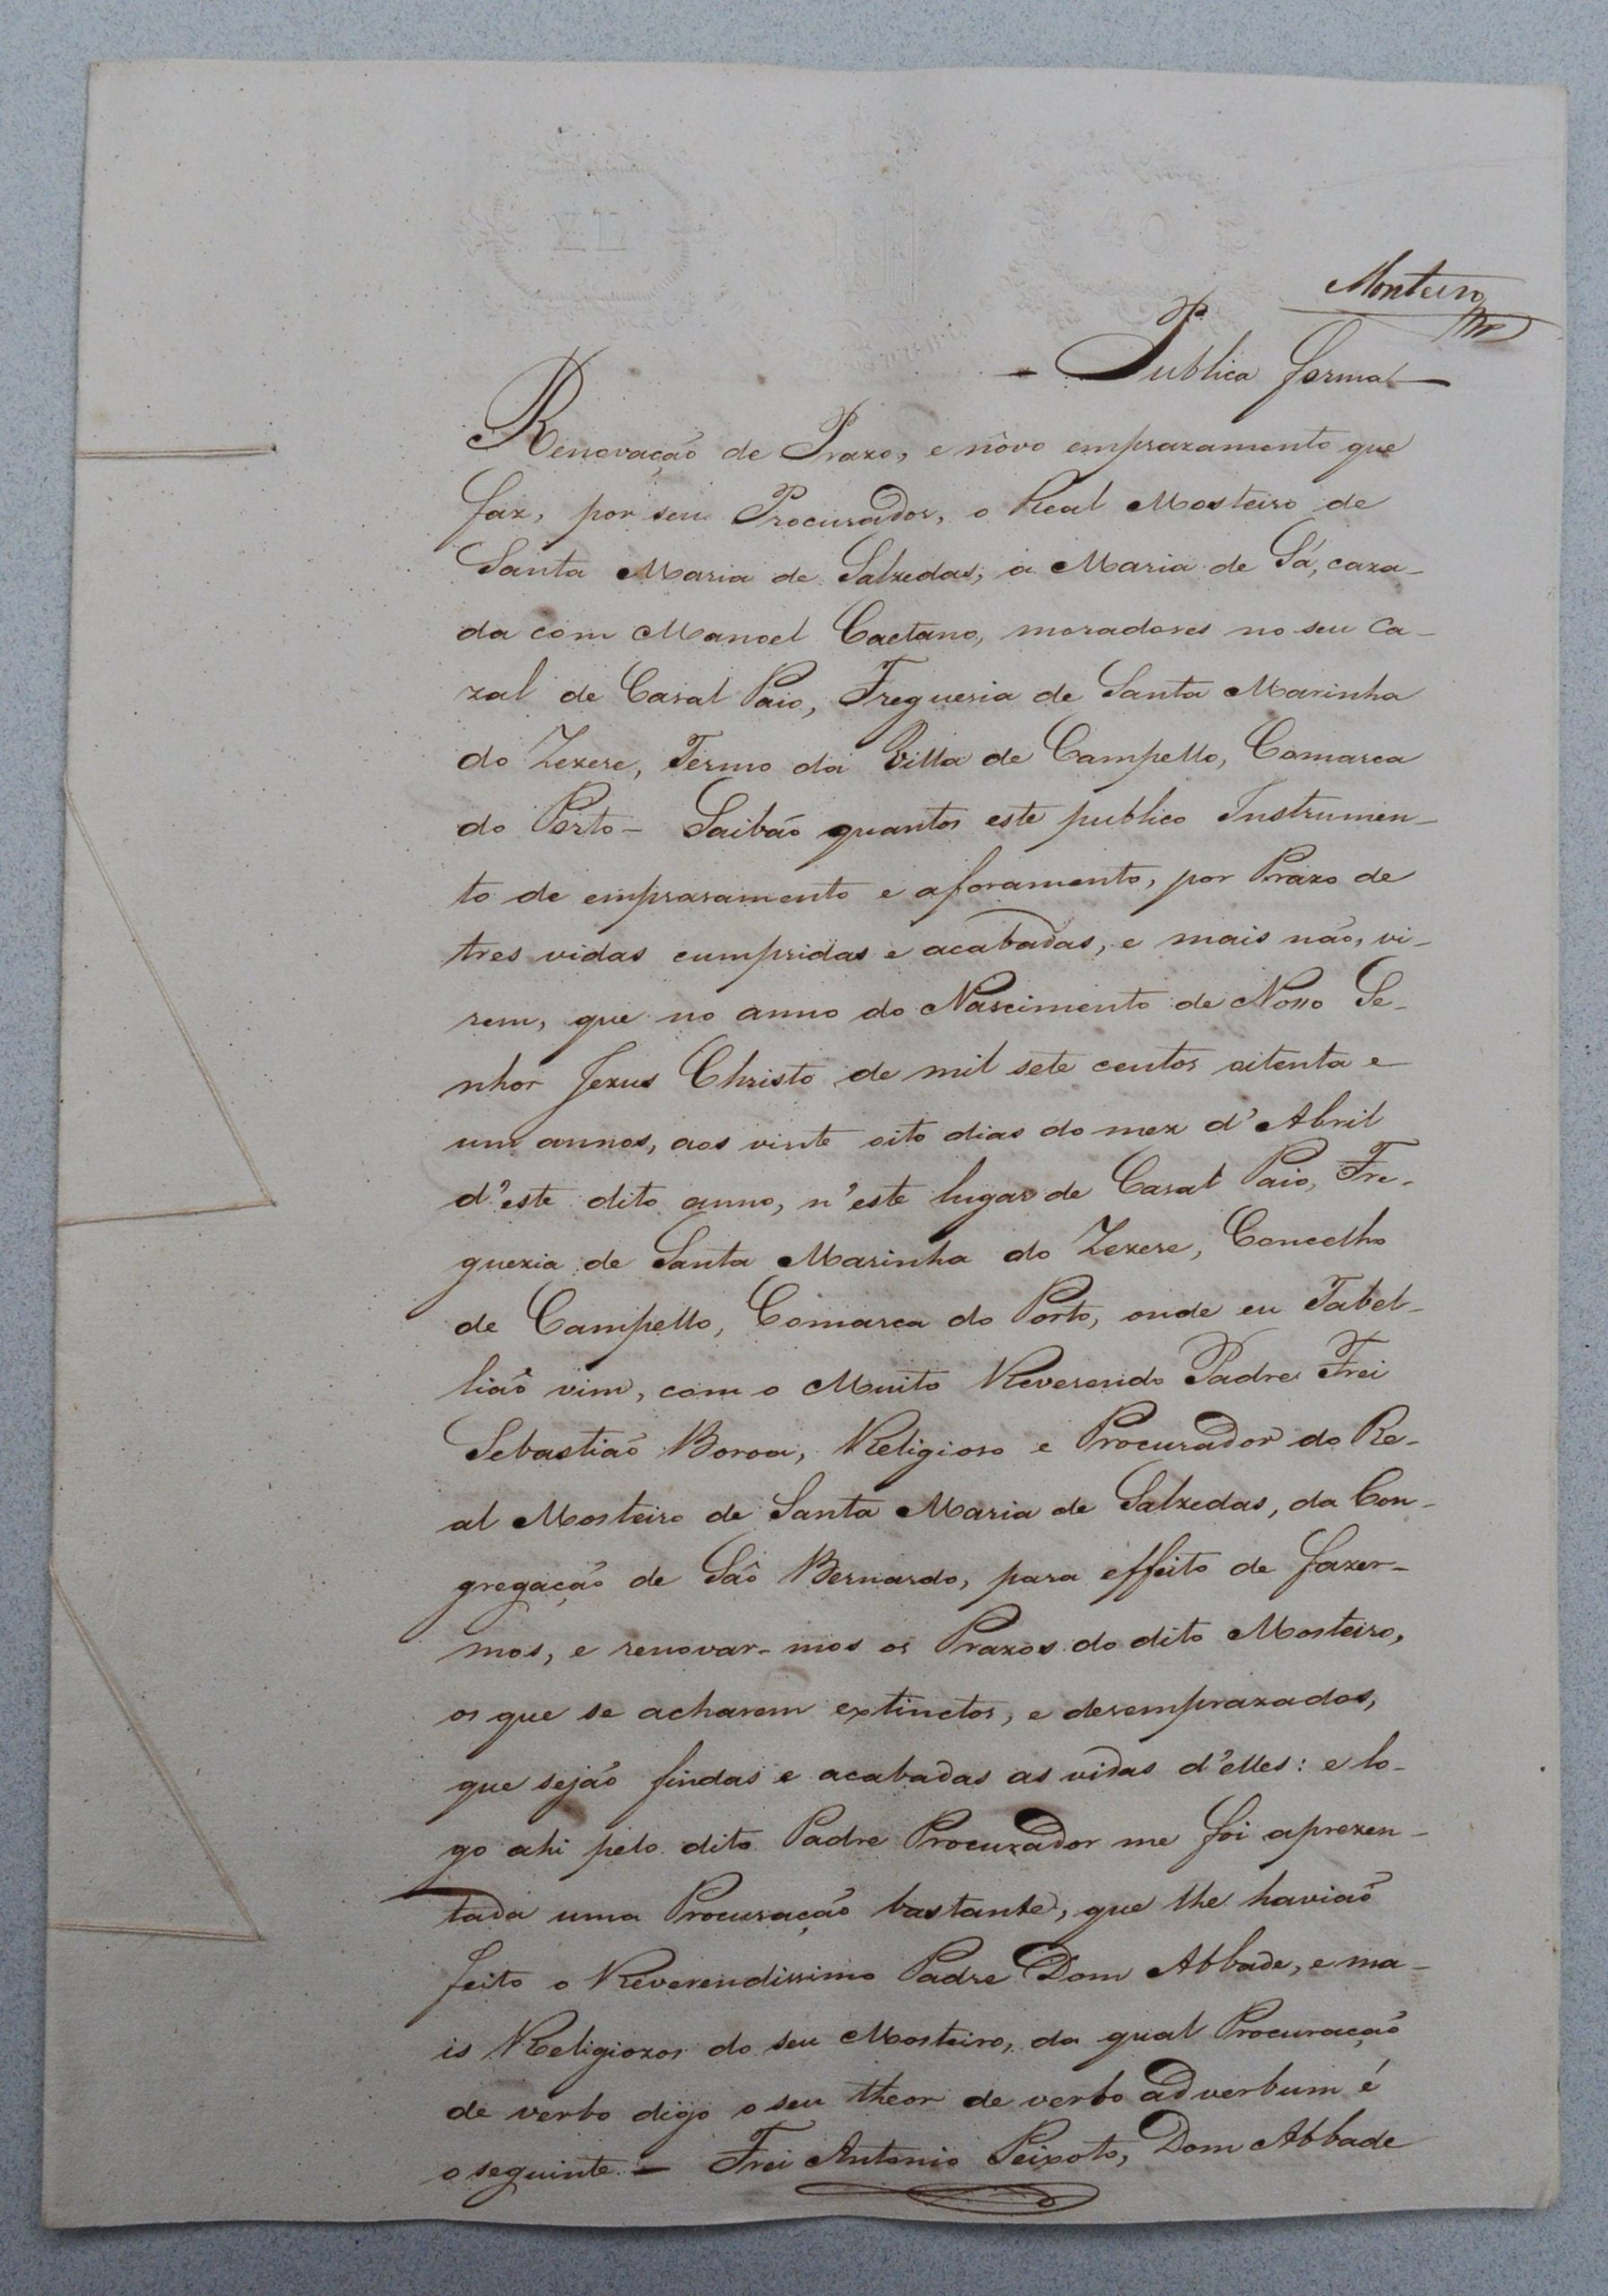 Monteiro
- Publica forma -
Renovação de Prazo, e nôvo emprazamento que
faz, por seu Procurador, o Real Mosteiro de
Santa Maria de Salzedas, a Maria de Sá, caza-
da com Manoel Caetano, moradores no seu Ca-
zal de Casal Paio, Freguesia de Santa Marinha
do Zezere, Termo da Villa de Campello, Comarca
do Porto - Saibão quantos este publico Instrumen-
to de emprasamento e aforamento, por Prazo de
tres vidas cumpridas e acabadas, e mais não, vi-
rem, que no anno do Nascimento de Nosso Se-
nhor Jezus Christo de mil sete centos oitenta e
um annos, aos vinte oito dias do mez d'Abril
d'este dito anno, n'este lugar de Casal Paio, Fre-
guezia de Santa Marinha do Zezere, Concelho
de Campello, Comarca do Porto, onde eu Tabel-
lião vim, com o Muito Reverendo Padre Frei
Sebastião Boroa, Religioso e Procurador do Re-
al Mosteiro de Santa Maria de Salzedas, da Con-
gregação de São Bernardo, para effeito de fazer-
mos, e renovar-mos os Prazos do dito Mosteiro,
os que se acharem extinctos, e desemprazados,
que sejão findas e acabadas as vidas d'elles: e lo-
go ahi pelo dito Padre Procurador me foi aprezen-
tada uma Procuração bastante, que lhe havião
feito o Reverendissimo Padre Dom Abbade, e ma-
is Religiozos do seu Mosteiro, da qual Procuração
de verbo digo o seu theor de verbo ad verbum é
o seguinte - Frei Antonio Peixoto, Dom Abbade